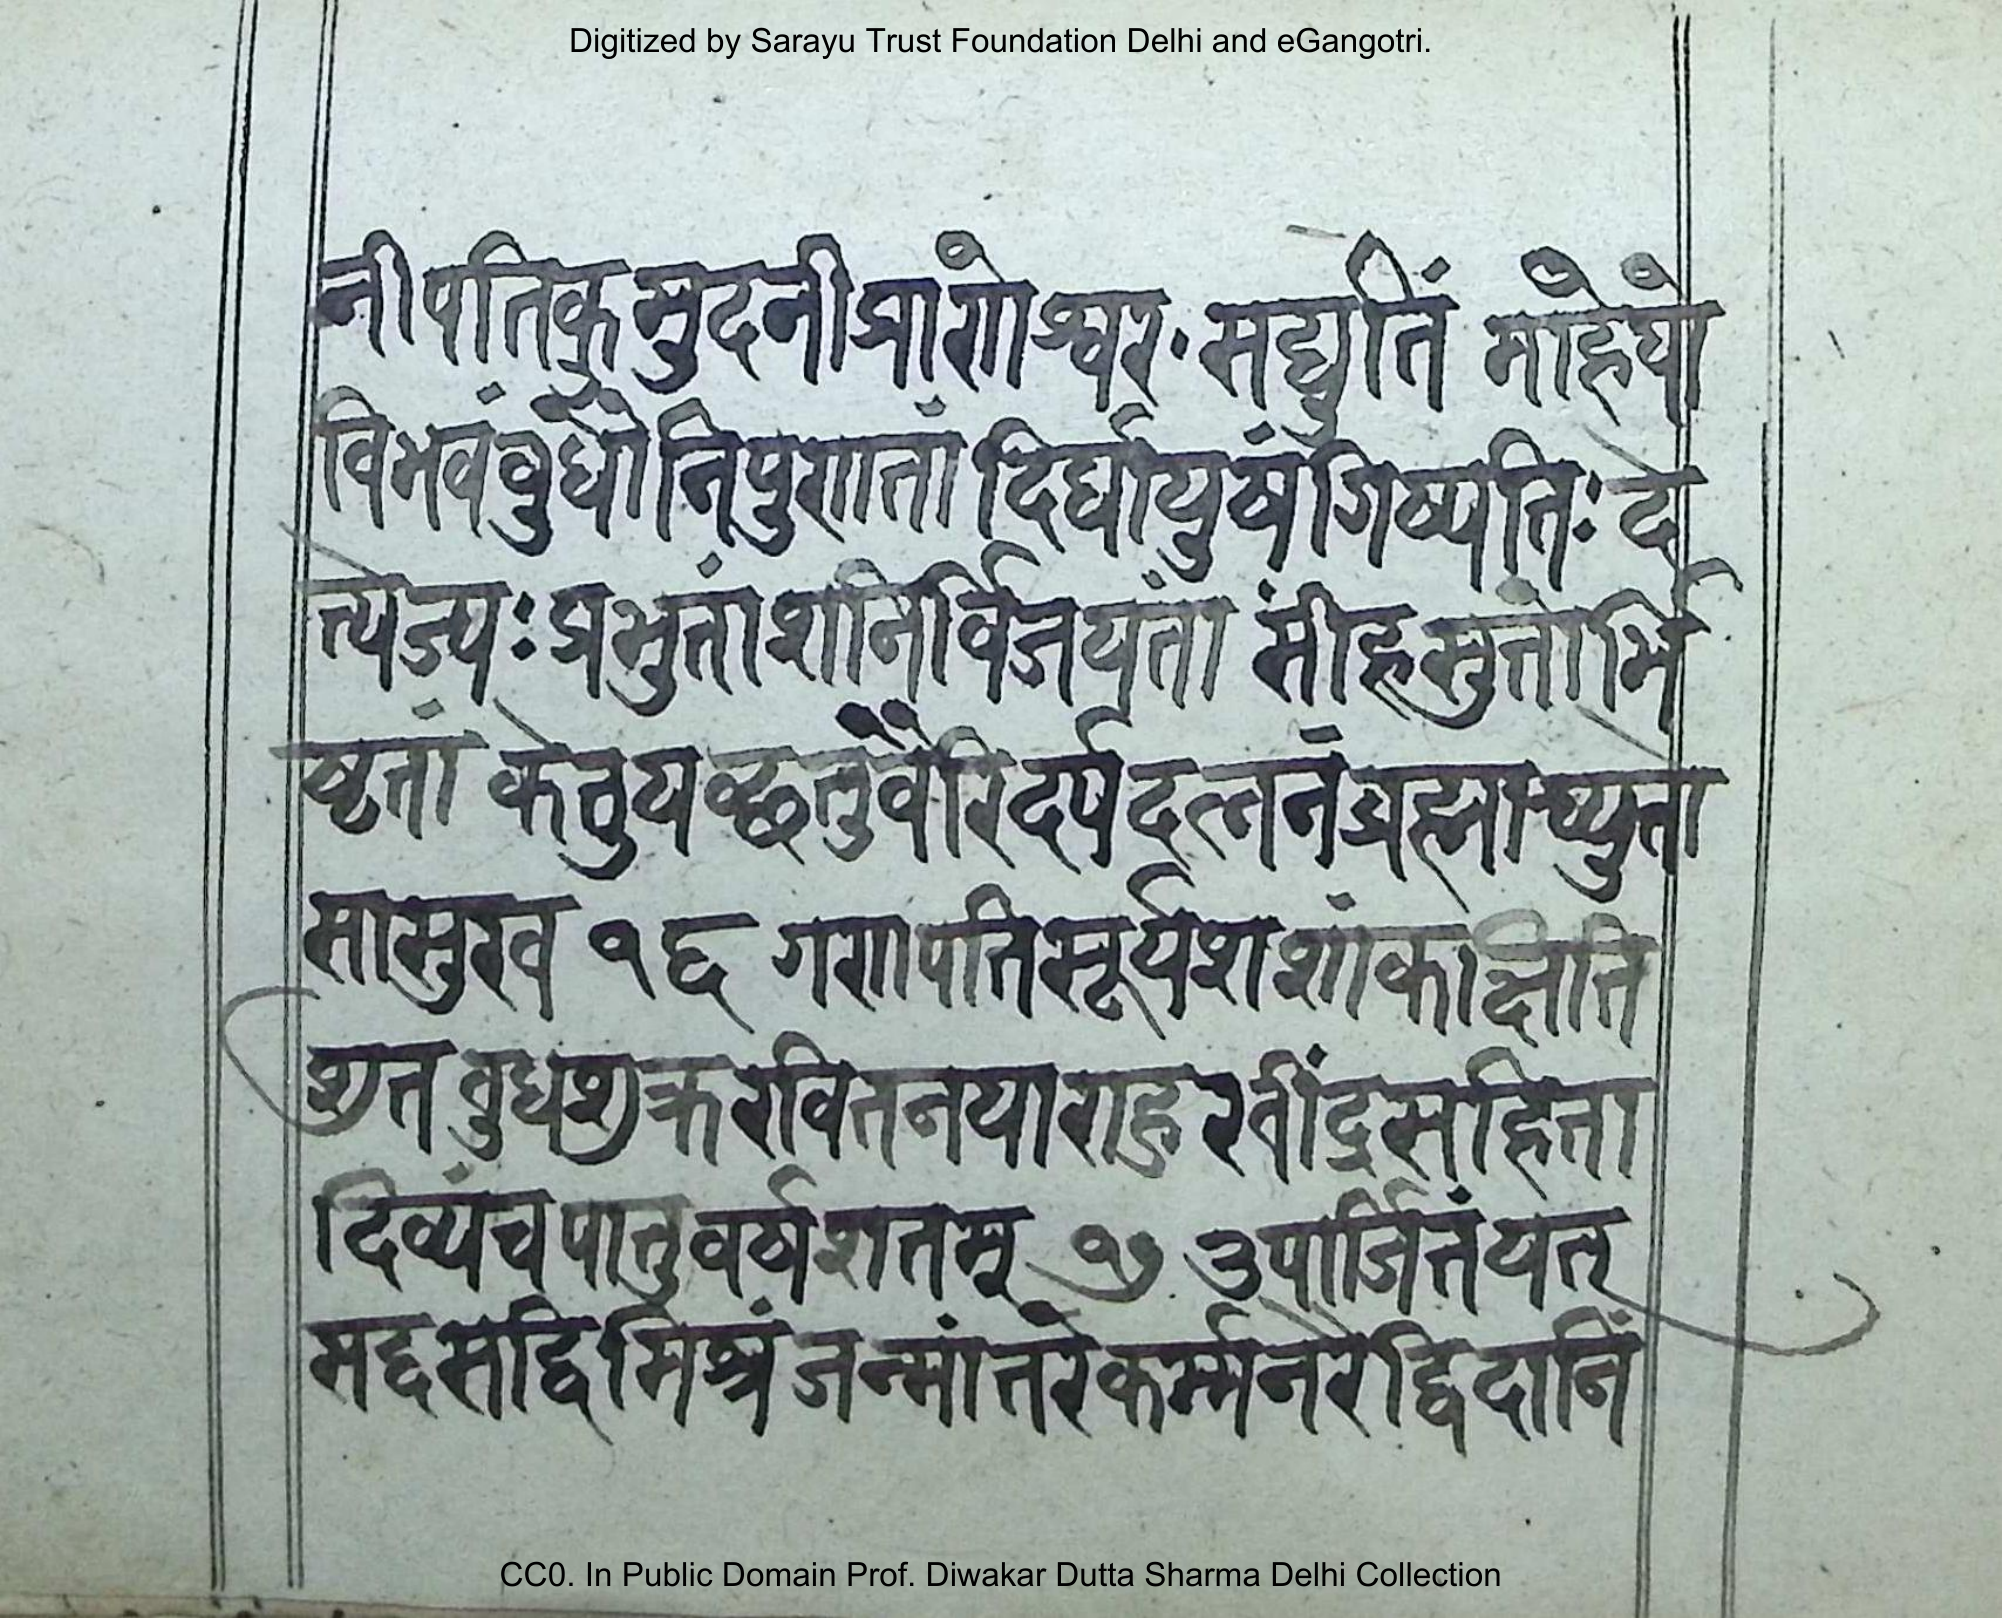 Digitized by Sarayu Trust Foundation Delhi and eGangotri.
नीपतिकुमुदनीप्राणेश्वर सद्द्युतिं माहेयो
विभवंवुधोनिपुणतां दिर्घायुषंगिष्पतिः दे
त्येज्यः प्रभुतांशनिर्विजयतां सींहसुतोभि
ष्टतां केतुयछतुवैरिदर्पदलनंब्रह्माच्युता
सासुख १६ गणपतिसूर्यशशांकाक्षिति
शुत वुधशुक्ररवितनयाराहुरवींदुसहिता
दिव्यंचपातुवर्षशतम् १७ उपार्जितंयत्
मद्दसद्विमिश्रं जन्मांतरेकर्म्मनरेद्विदानिं
CC0. In Public Domain Prof. Diwakar Dutta Sharma Delhi Collection